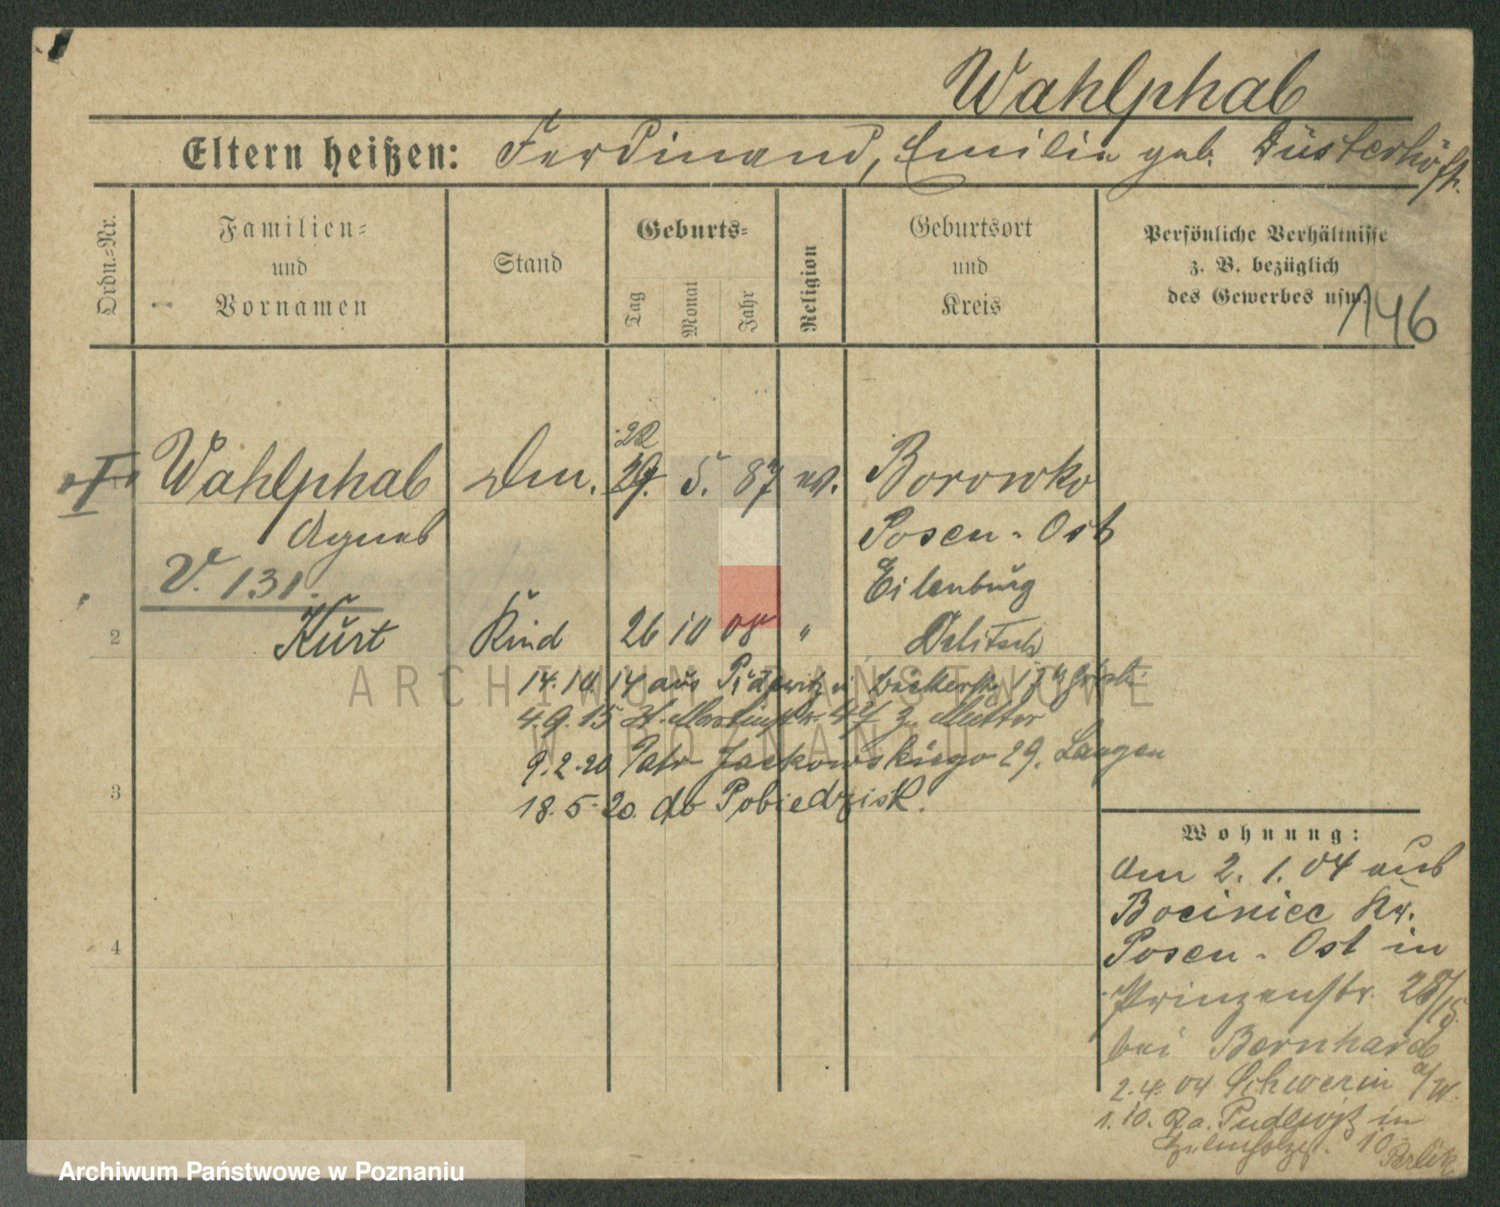 Wahlphab
Eltern heißen: Ferdinand, Emilie geb. Düsterhöft.
Ordn.-Nr.
Familien-
und
Vornamen
Stand
Geburts-
Tag
Monat
Jahr
Religion
Geburtsort
und
Kreis
Persönliche Verhältnisse
z. B. bezüglich
des Gewerbes usw.
146
22
I Wahlphab Dm. 29. 5. 87 ev. Borowko
Agnes Posen-Ost
V. 131. Eilenburg
2 Kurt Kind 26 10 08 " Delitsch
14.10.14 aus
4.9.15 z. Mutter
9.2.20 Patr Jackowskiego 29. Langen
18.5.20. do Pobiedzisk.
3
4
Wohnung:
Am 2. 1. 04 aus
Bociniec Kr.
Posen-Ost in
Prinzenstr. 28/15.
bei Bernhard
2.4.04 Schwerin a/W.
1.10. Pudewitz in
ARCHIWUM PAŃSTWOWE
W POZNANIU
Archiwum Państwowe w Poznaniu